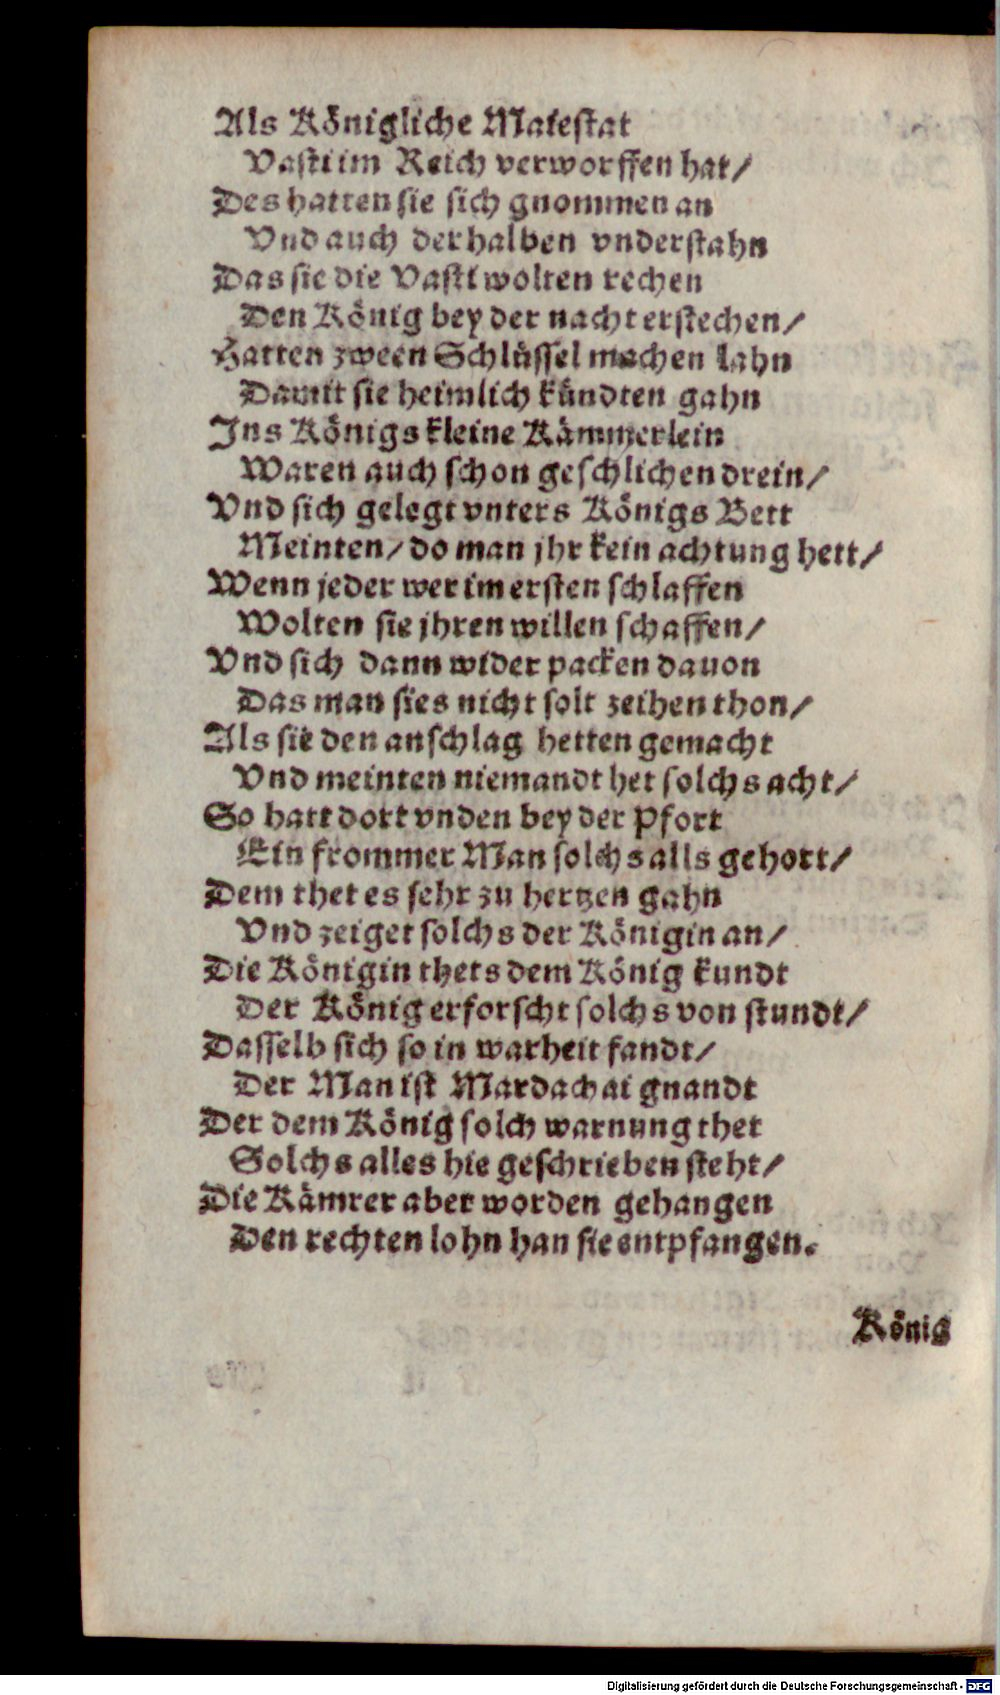 Als Königliche Maiestat
Vasti im Reich verworffen hat/
Des hatten sie sich gnommen an
Vnd auch derhalben vnderstahn
Das sie die Vasti wolten rechen
Den König bey der nacht erstechen/
Hatten zween Schlüssel machen lahn
Damit sie heimlich kündten gahn
Jns Königs kleine Kämmerlein
Waren auch schon geschlichen drein/
Vnd sich gelegt vnters Königs Bett
Meinten/ do man jhr kein achtung hett/
Wenn jeder wer im ersten schlaffen
Wolten sie jhren willen schaffen/
Vnd sich dann wider packen dauon
Das man sies nicht solt zeihen thon/
Als sie den anschlag hetten gemacht
Vnd meinten niemandt het solchs acht/
So hatt dort vnden bey der Pfort
Ein frommer Man solchs alls gehort/
Dem thet es sehr zu hertzen gahn
Vnd zeiget solchs der Königin an/
Die Königin thets dem König kundt
Der König erforscht solchs von stundt/
Dasselb sich so in warheit fandt/
Der Man ist Mardachai gnandt
Der dem König solch warnung thet
Solchs alles hie geschrieben steht/
Die Kämrer aber worden gehangen
Den rechten lohn han sie entpfangen.
König
Digitalisierung gefördert durch die Deutsche Forschungsgemeinschaft - DFG